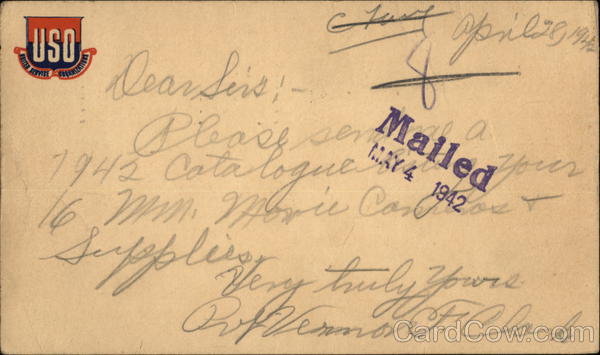 USO
UNITED SERVICE ORGANIZATIONS
April 28, 1942
8
Dear Sirs:-
Please send me a
1942 Catalogue your
16 MM. Movie Cameras +
Supplies
Very truly yours
Pvt Vernon
Mailed
MAY 4 1942
CardCow.com